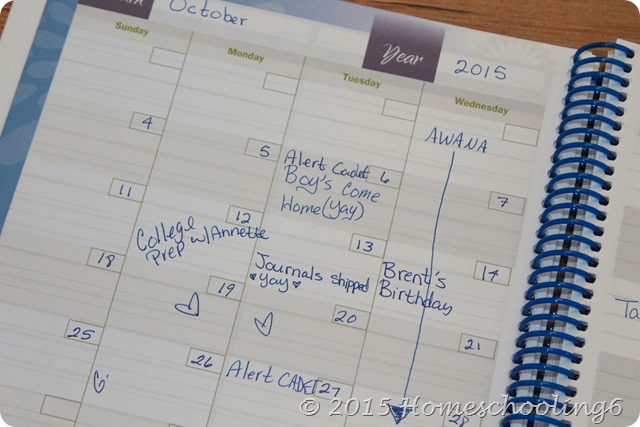 October
Year
2015
Sunday
Monday
Tuesday
Wednesday
AWANA
4
5
Alert Cadet 6
Boy's Come
Home (yay)
7
11
12
College
Prep w/Annette
13
14
Brent's
Birthday
18
19
Journals shipped
yay
20
21
25
26
Alert CADET 27
28
Ta
© 2015 Homeschooling6